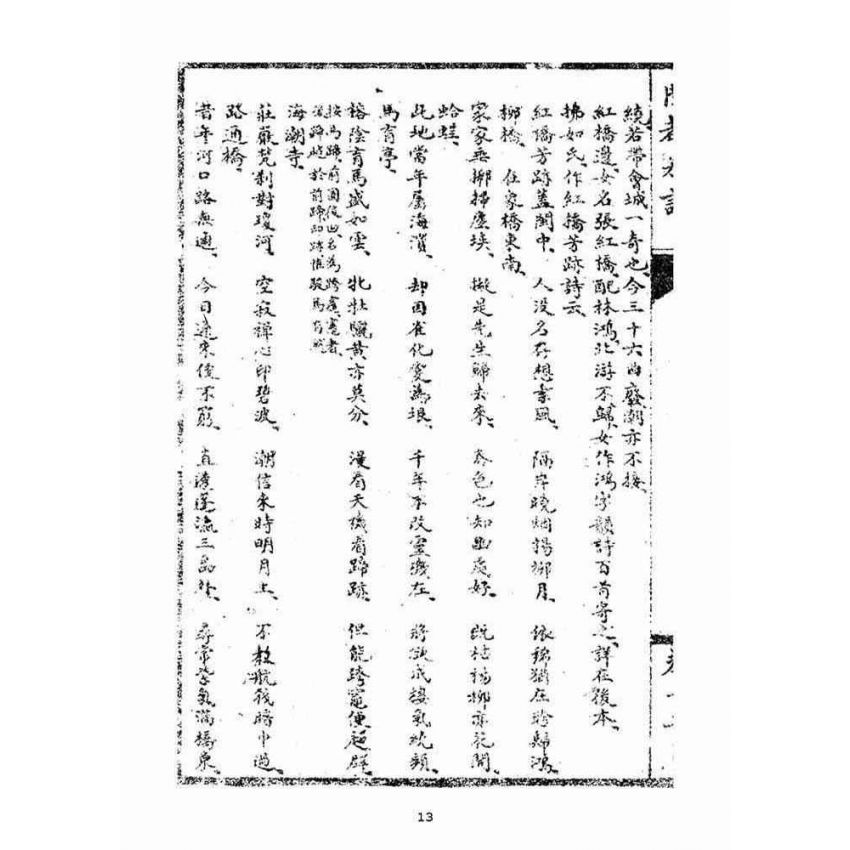 繞若帶會城一奇也今三十六曲廢潮亦不接
紅橋邊女名張紅橋配林鴻北游不歸女作鴻字韻詩百首寄之詳在後本
掃如氏作紅橋芳跡詩云
紅橋芳跡蓋閩中 人没名存想素風 隔岸曉烟揚柳月 依稀猶在聆歸鴻
柳橋 住家橋東南
家家垂柳掃塵埃 擬是先生歸去來 春色也知幽處好 既枯楊柳亦花開
蛤蛙
此地當年屬海濱 却因雀化變為垠 千年不改靈漈在 將欲成樓氣吮頻
馬育亭
榕陰育馬盛如雲 牝牡驪黃亦莫分 漫看天機看蹄跡 但能跨竈便超群
按馬蹄前圓後凹名為跨竈竈者
後蹄跡於前蹄即跡惟駿馬有然
海潮寺
莊嚴梵刹對瓊河 空寂禪心印碧波 潮信來時明月上 不教航筏暗中過
路通橋
昔年河口路無通 今日遠來復不窮 直達蓬瀛三島外 尋常紫氣滿橋東
卷十
13